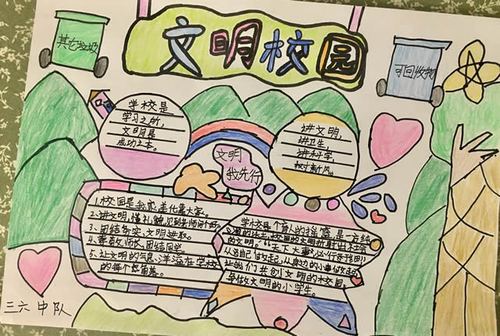 文明校园
其它垃圾
可回收物
学校是
学习之所,
文明是
成功之本。
讲文明,
讲卫生,
讲科学,
树新风。
文明
我先行
1.校园是我家,美化靠大家。
2.讲文明,懂礼貌,见到老师问个好。
3.团结务实,文明进取。
4.尊敬师长,团结同学
5.让文明的气息,洋溢在学校
的每个角落。
学校是个育人的摇篮,是一方纯
的文明。
从我自己做起,从身边的小事做起
让我们共创文明的校园,
争做文明的小学生。
三六中队